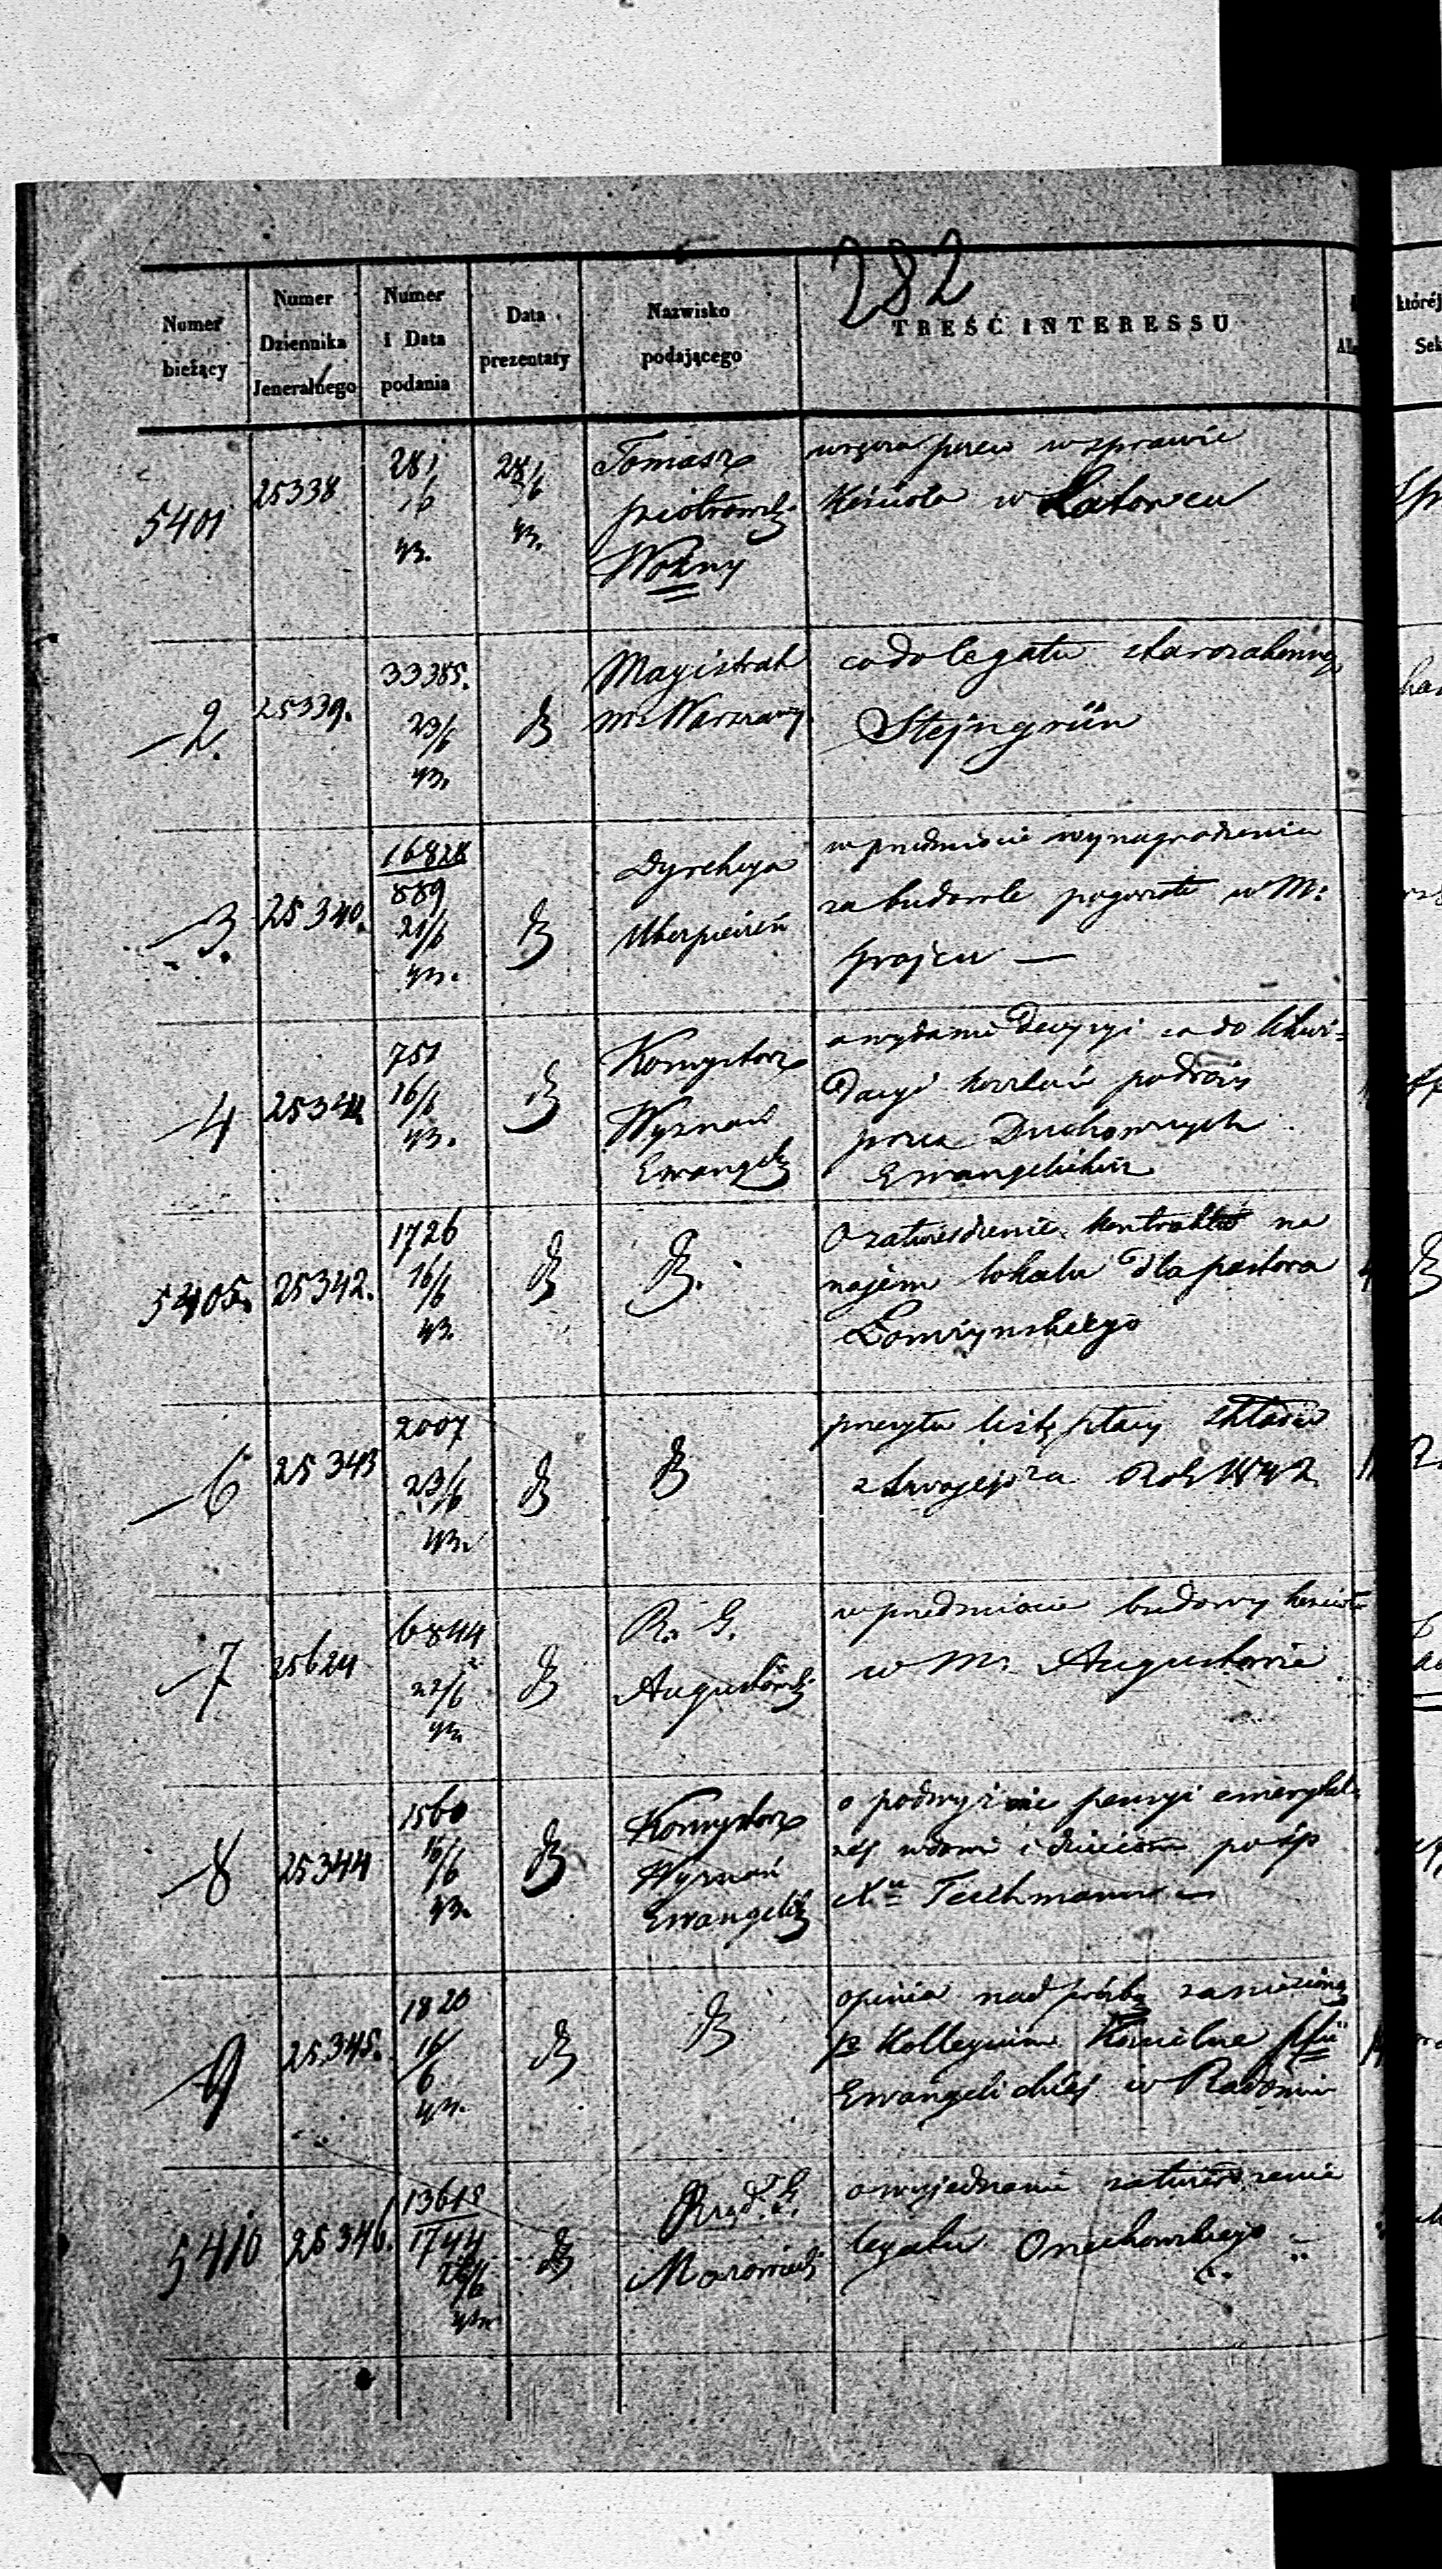 282
Numer bieżący
Numer Dziennika Jeneralnego
Numer i Data podania
Data prezentaty
Nazwisko podającego
TREŚĆ INTERESSU
5401 25338 28/6 43. 28/6 43. Tomasz wręcza w sprawie
Piotrowski Kościoła w Latowcu
Woźny
2. 25339. 33385. 23/6 43. Magistrat co do legatu starozakonnej
M. Warszawy Stejngrün
3. 25340. 16828/889 21/6 43. Dyrekcya w przedmiocie wynagrodzenia
Ubezpieczeń za budowle pogorzałe w M.
Grojcu —
4 25341. 751 16/6 43. Konsystorz o wydanie Decyzyi co do likwi=
Wyznań dacyi kosztów podróży
Ewangel przez Duchownych
Ewangelickich
5405. 25342. 1726 16/6 43. O zatwierdzenie kontraktu na
najem lokalu dla pastora
Łomżynskiego
6 25343 2007 23/6 43. listę płacy składu
swojego za Rok 1842
7 25624 6844 22/6 43. R. G. w przedmiocie budowy kościoła
Augustowski w M. Augustowie
8 25344 1560 16/6 43. Konsystorz o podwyższenie pensyi emerytal-
Wyznań nej wdowie i dzieciom po śp
Ewangelick Xu Teichmannie
9 25345. 1820 16/6 43. opinia nad prośbą zaniesioną
pr Kollegium Kościelne
Ewangelickiej w Radomiu
5410 25346. 13618/1744 43. Rząd. G. o wyjednanie zatwierdzenia
Mazowiecki legatu Orzechowskiego